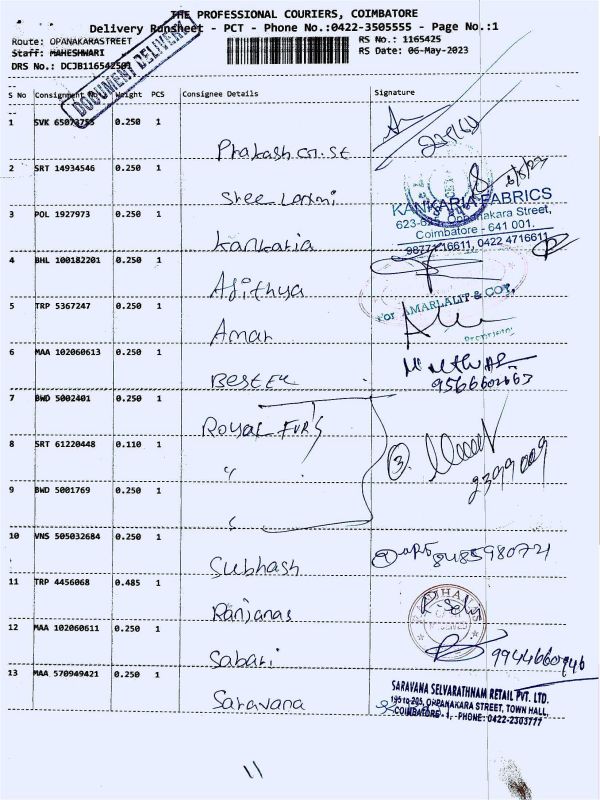 THE PROFESSIONAL COURIERS, COIMBATORE
Delivery Runsheet - PCT - Phone No.:0422-3505555 - Page No.:1
Route: OPANAKARASTREET
RS No.: 1165425
Staff: MAHESHWARI
RS Date: 06-May-2023
DRS No.: DCJB116542501
DOCUMENT DELIVERY
S No Consignment No Weight PCS Consignee Details Signature
1 SVK 65073753 0.250 1
Prakash
2 SRT 14934546 0.250 1
Sree Laxmi
6/5/23
KANKARIA FABRICS
623-625, Oppanakara Street,
Coimbatore - 641 001.
98771 16611, 0422 4716611
3 POL 1927973 0.250 1
Kankaria
4 BHL 100182201 0.250 1
Adithya
For AMARLALIT & COY,
Proprietor
5 TRP 5367247 0.250 1
Amar
6 MAA 102060613 0.250 1
Best
7 BWD 5002401 0.250 1
Royal FURS
8 SRT 61220448 0.110 1
"
3
2399009
9 BWD 5001769 0.250 1
"
10 VNS 505032684 0.250 1
Subhash
8485980721
11 TRP 4456068 0.485 1
Ranjanas
12 MAA 102060611 0.250 1
Sabari
9944660946
13 MAA 570949421 0.250 1
Saravana
SARAVANA SELVARATHNAM RETAIL PVT. LTD.
195 to 205, OPPANAKARA STREET, TOWN HALL,
COIMBATORE - 1, PHONE: 0422-2303777
11